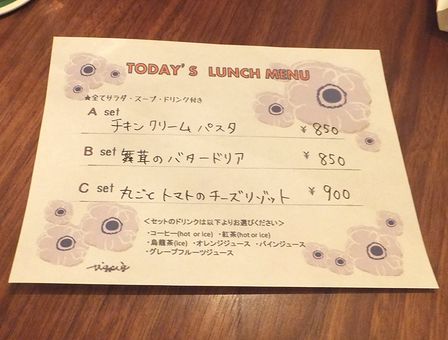 TODAY'S LUNCH MENU
★全てサラダ・スープ・ドリンク付き
A set
チキンクリームパスタ ¥850
B set 舞茸のバタードリア ¥850
C set 丸ごとトマトのチーズリゾット ¥900
<セットのドリンクは以下よりお選びください>
・コーヒー(hot or ice) ・紅茶(hot or ice)
・烏龍茶(ice) ・オレンジジュース ・パインジュース
・グレープフルーツジュース